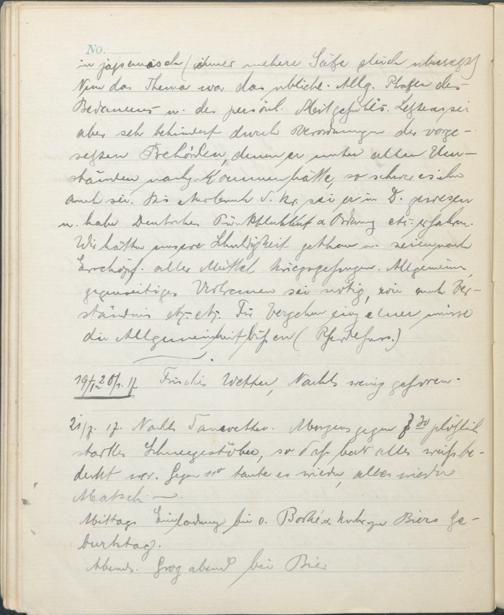 No.
in japanisch (immer mehere Sätze gleich übersetzt)
Nun das Thema war das übliche. Allg. Phrasen des
Bedauerns u. des persönl. Mitgefühls. Letzteres sei
aber sehr behindert durch Verordnungen der vorge-
setzten Behörden, denen er unter allen Um-
ständen nachzukommen hätte, so schwer es ihm
auch sei. Bis Ausbruch d. Kr. sei er in D. gewesen
u. habe Deutsches Bildung etc. erfahren.
Wir hätten unsere Schuldigkeit gethan u. seien nach
Erschöpf. aller Mittel kriegsgefangen. Allgemeines,
gegenseitiges Vertrauen sei nötig, wie auch Ver-
ständnis etc. etc. Für Vergehen einzelner müsse
die Allgemeinheit büßen (
19/1. 20/1. 17 Frisches Wetter, Nachts wenig gefroren.
21/1. 17. Nachts Tauwetter. Morgens gegen 7 30 plötzlich
starkes Schneegestöber, so daß bald alles weiß be-
deckt war. Gegen taute es wieder, alles wieder
Matsch
Mittags Einladung bei Biers Ge-
burtstag.
Abends. Grogabend bei Bier